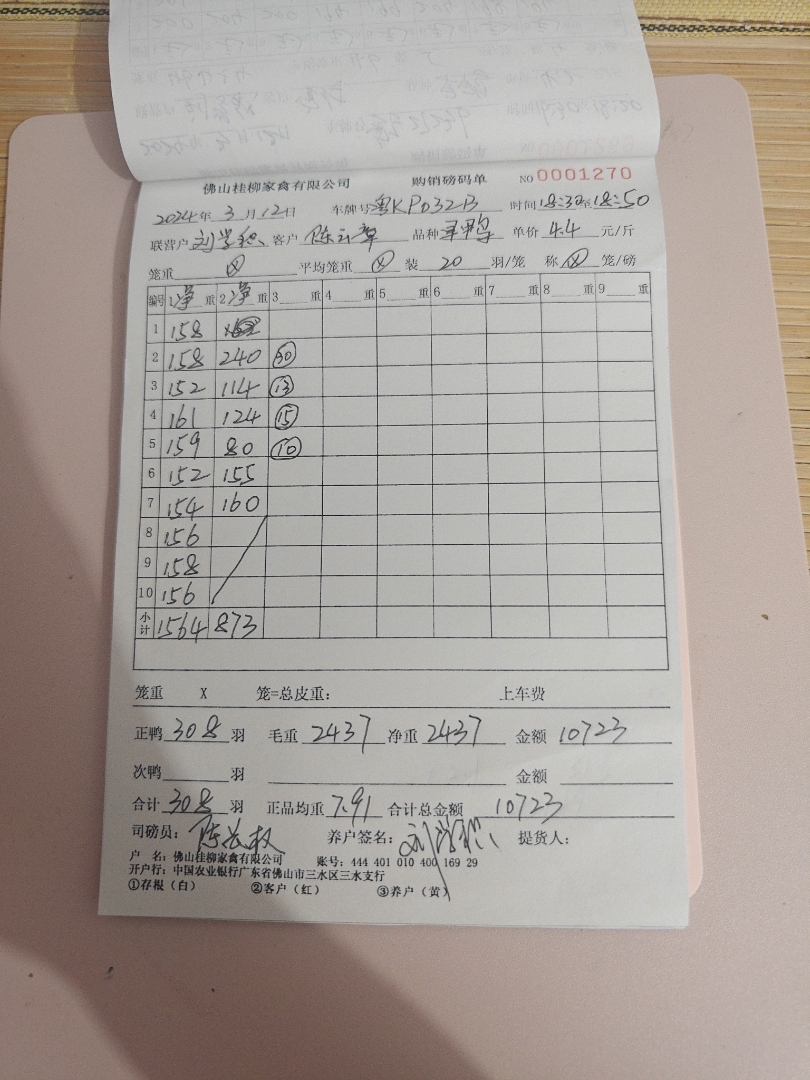 佛山桂柳家禽有限公司 购销磅码单 NO 0001270
2024年3月12日 车牌号粤KP032B 时间18:30至18:50
联营户 刘学积 客户 陈云章 品种 鸭 单价 4.4 元/斤
笼重 ⊗ 平均笼重 ⊗ 装 20 羽/笼 称 ⊗ 笼/磅
编号 1净重 2净重 3 重 4 重 5 重 6 重 7 重 8 重 9 重
1 158
2 158 240 30
3 152 114 13
4 161 124 15
5 159 80 10
6 152 155
7 154 160
8 156
9 158
10 156
小计 1564 873
笼重 X 笼=总皮重： 上车费
正鸭 308 羽 毛重 2437 净重 2437 金额 10723
次鸭 羽 金额
合计 308 羽 正品均重 7.91 合计总金额 10723
司磅员： 养户签名：刘学积 提货人：
户 名：佛山桂柳家禽有限公司 账号：444 401 010 400 169 29
开户行：中国农业银行广东省佛山市三水区三水支行
①存根（白） ②客户（红） ③养户（黄）